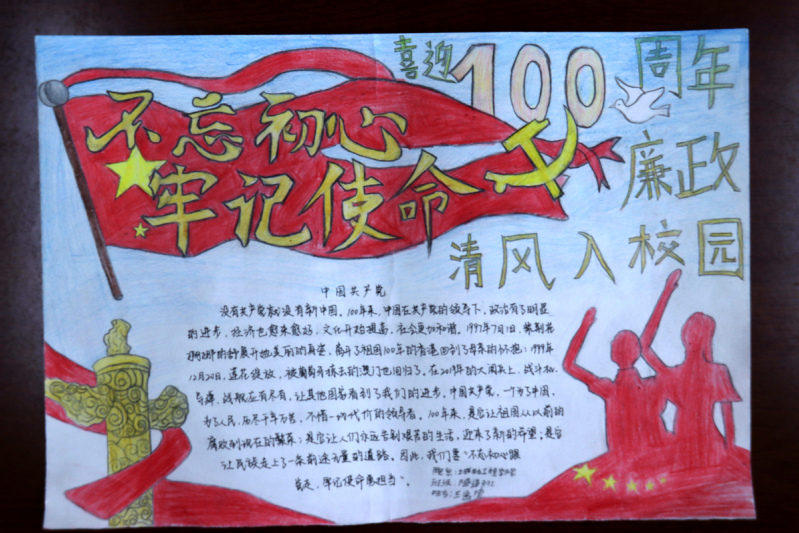 喜迎100周年
不忘初心
牢记使命
廉政
清风入校园
中国共产党
没有共产党就没有新中国。100年来,中国在共产党的领导下,政治有了明显
的进步,经济也愈来愈好,文化开始提高,社会更加和谐。1997年7月1日,紫荆花
姗姗的舒展开她美丽的真姿,离开了祖国100年的香港回到了母亲的怀抱;1999年
12月20日,莲花绽放,被葡萄牙掠去的澳门也回归了。在2019年的大阅兵上,战斗机、
导弹、战舰应有尽有,让其他国家看到了我们的进步。中国共产党,一个为了中国、
为了人民,历尽千辛万苦,不惜一切代价的领导者。100年来,是它让祖国从以前的
腐败到现在的繁荣;是它让人们永远告别艰苦的生活,迎来了新的希望;是它
让民族走上了一条前途无量的道路。因此,我们要“不忘初心跟
党走,牢记使命勇担当”。
班级:
姓名: